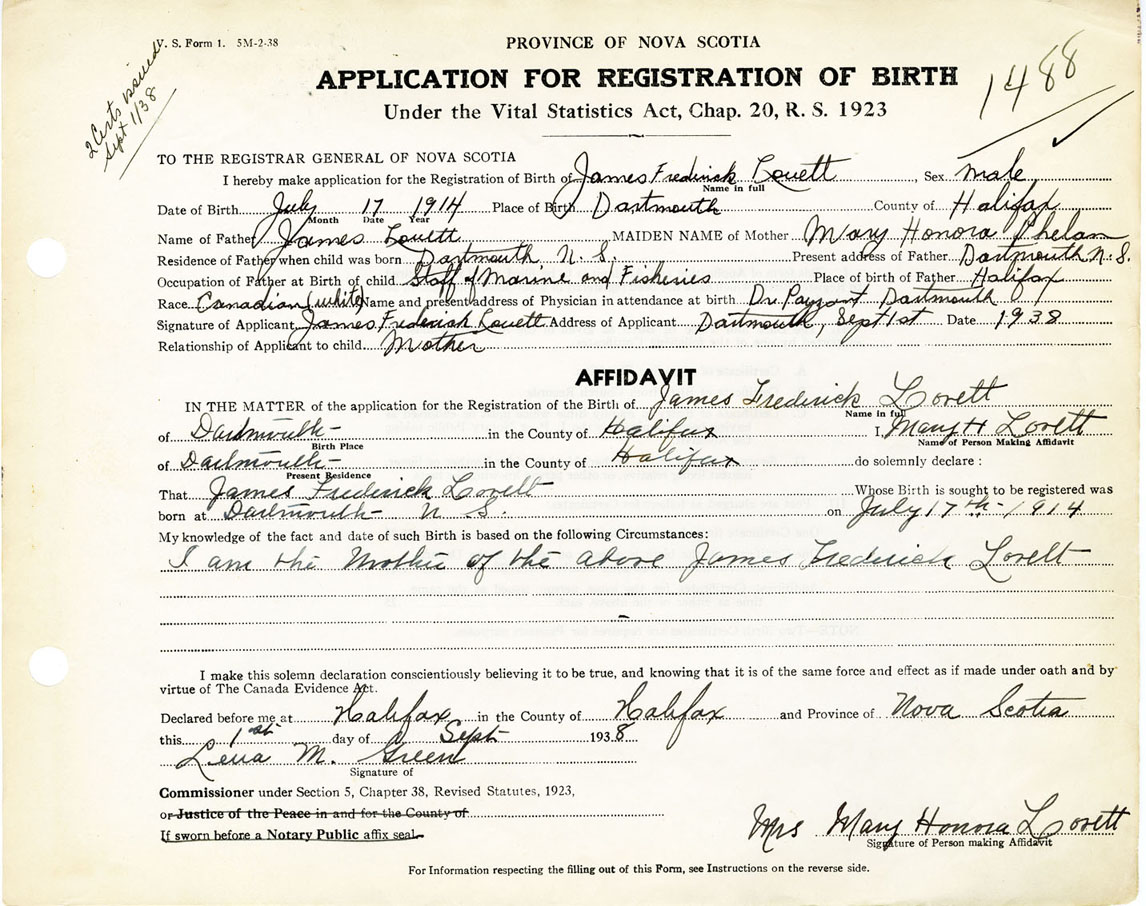 V. S. Form 1. 5M-2-38
2 Certs issued
Sept 1/38
PROVINCE OF NOVA SCOTIA
1488
APPLICATION FOR REGISTRATION OF BIRTH
Under the Vital Statistics Act, Chap. 20, R. S. 1923
TO THE REGISTRAR GENERAL OF NOVA SCOTIA
I hereby make application for the Registration of Birth of James Frederick Lovett, Sex Male
Name in full
Date of Birth July 17 1914 Place of Birth Dartmouth County of Halifax
Month Date Year
Name of Father James Lovett MAIDEN NAME of Mother Mary Honora Phelan
Residence of Father when child was born Dartmouth N. S. Present address of Father Dartmouth N. S.
Occupation of Father at Birth of child Staff of Marine and Fisheries Place of birth of Father Halifax
Race Canadian (white) Name and present address of Physician in attendance at birth Dr Payzant Dartmouth
Signature of Applicant James Frederick Lovett Address of Applicant Dartmouth, Sept 1st Date 1938
Relationship of Applicant to child Mother
AFFIDAVIT
IN THE MATTER of the application for the Registration of the Birth of James Frederick Lovett
Name in full
of Dartmouth in the County of Halifax I, Mary H Lovett
Birth Place Name of Person Making Affidavit
of Dartmouth in the County of Halifax do solemnly declare :
Present Residence
That James Frederick Lovett Whose Birth is sought to be registered was
born at Dartmouth N. S. on July 17th - 1914
My knowledge of the fact and date of such Birth is based on the following Circumstances:
I am the Mother of the above James Frederick Lovett
I make this solemn declaration conscientiously believing it to be true, and knowing that it is of the same force and effect as if made under oath and by
virtue of The Canada Evidence Act.
Declared before me at Halifax in the County of Halifax and Province of Nova Scotia
this 1st day of Sept 1938
Lena M. Green
Signature of
Commissioner under Section 5, Chapter 38, Revised Statutes, 1923,
or Justice of the Peace in and for the County of
If sworn before a Notary Public affix seal.
Mrs Mary Honora Lovett
Signature of Person making Affidavit
For Information respecting the filling out of this Form, see Instructions on the reverse side.